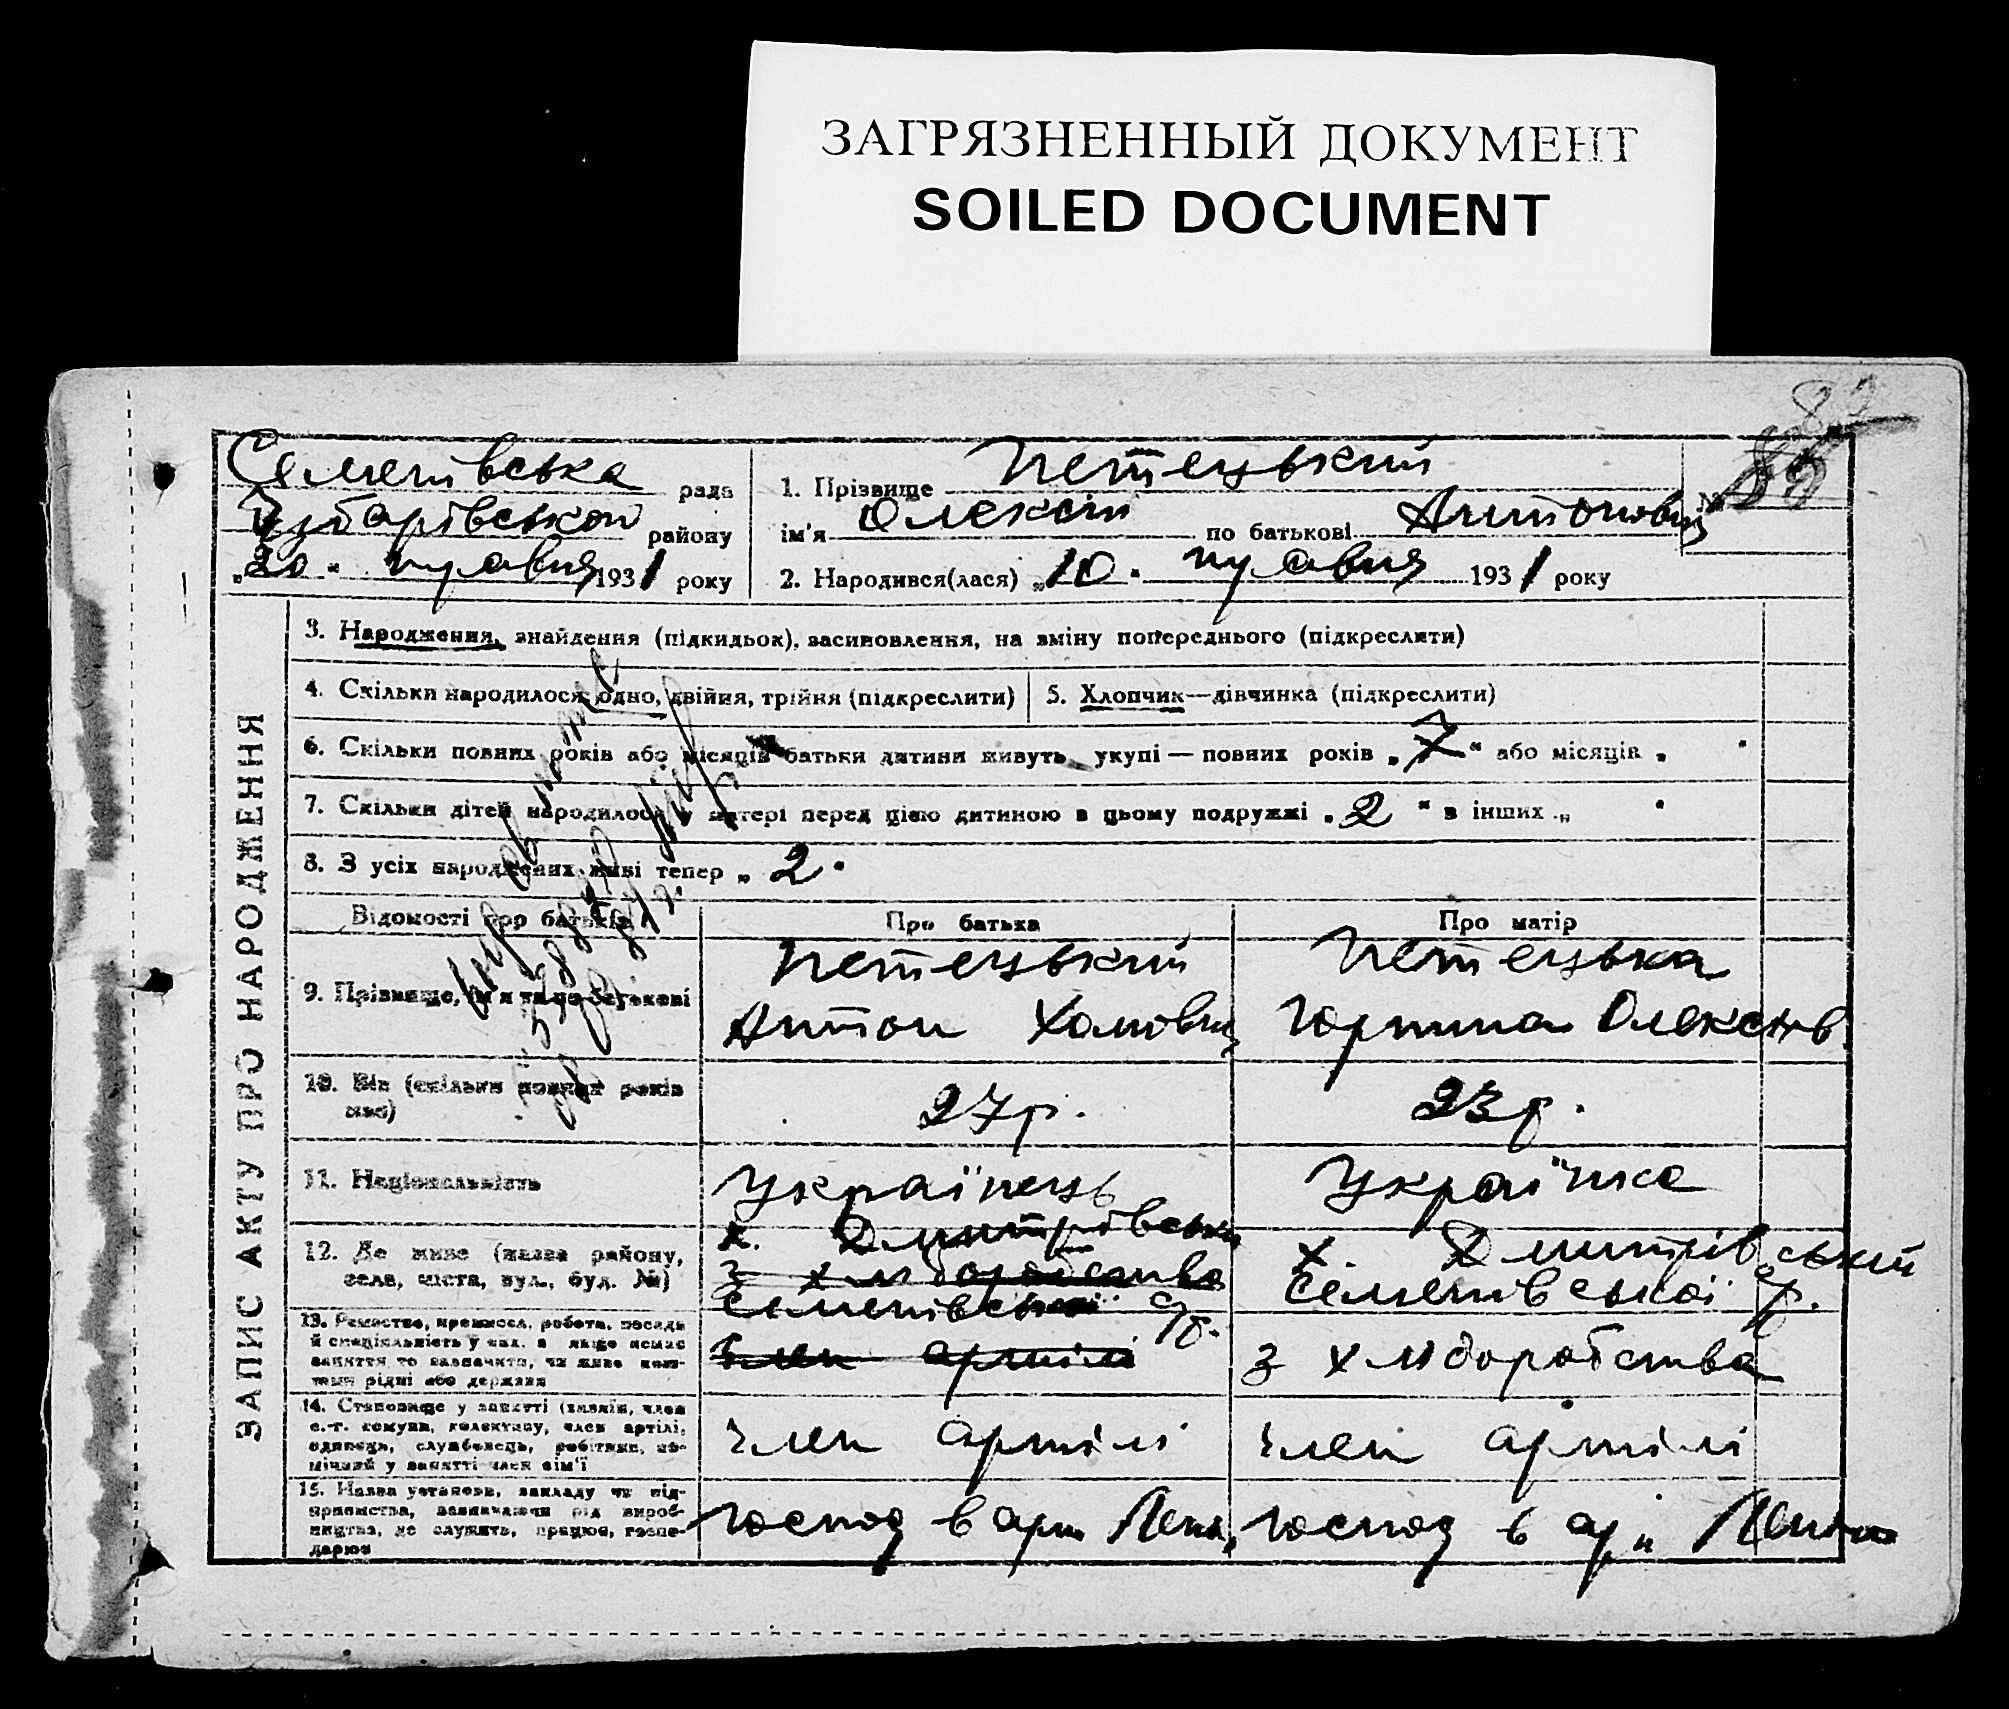 ЗАГРЯЗНЕННЫЙ ДОКУМЕНТ
SOILED DOCUMENT
82
85
Семенівська рада
району
„20“ травня 1931 року
1. Прізвище Петецький
ім'я Олексій по батькові Антонович
2. Народився(лася) „10“ травня 1931 року
№
ЗАПИС АКТУ ПРО НАРОДЖЕННЯ
3. Народження, знайдення (підкидьок), засиновлення, на зміну попереднього (підкреслити)
4. Скільки народилося: одно, двійня, трійня (підкреслити)
5. Хлопчик—дівчинка (підкреслити)
6. Скільки повних років або місяців батьки дитини живуть укупі — повних років „7“ або місяців „
7. Скільки дітей народилося у матері перед цією дитиною в цьому подружжі „2“ в інших „
8. З усіх народжених живі тепер „2“
Відомості про батьків
Про батька
Про матір
9. Прізвище, ім'я та по батькові
Петецький
Антон Хомович
Петецька
Олексіїв
10. Вік (скільки повних років має)
27 р.
23 р.
11. Національність
Українець
Українка
12. Де живе (назва району, села, міста, вул., буд. №)
х. Дмитрівський
з хлıборобства
Семенівської с/р.
х. Дмитрівський
Семенівської с/р.
13. Ремество, промисел, робота, посада й спеціяльність у них, а якщо немає заняття то зазначити, чи живе коштами рідні або держави
член артілі
з хліборобства
14. Становище у занятті (хазяїн, член с.-г. комуни, колективу, член артілі, одинець, службовець, робітник, помічний у занятті член сім'ї
член артілі
член артілі
15. Назва установи, закладу чи підприємства, зазначаючи рід виробництва, де служить, працює, господарює
господ в арт Лена
господ в ар„ Лені